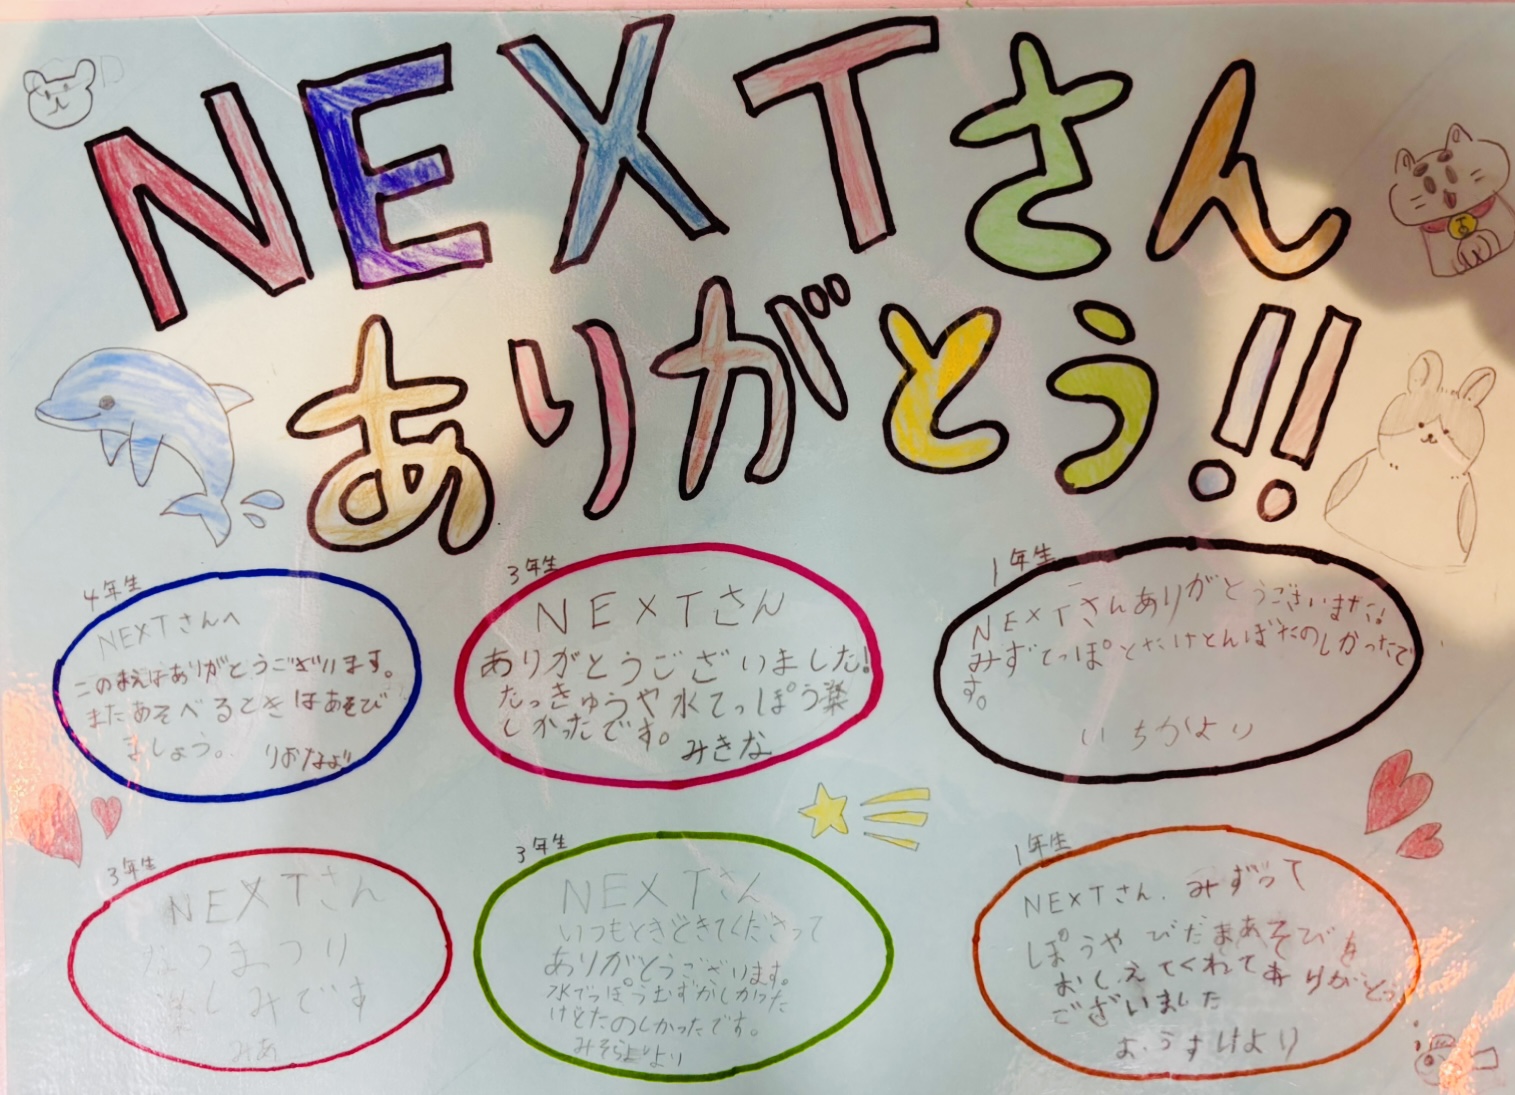 NEXTさん
ありがとう!!
4年生
NEXTさんへ
このまえはありがとうございます。
またあそべるときはあそび
ましょう。 りおなより
3年生
NEXTさん
ありがとうございました!
たっきゅうや水てっぽう楽
しかったです。
みきな
1年生
NEXTさんありがとうございました!
みずてっぽとたけとんぼたのしかったで
す。
いちかより
3年生
NEXTさん
なつまつり
楽しみです
みあ
3年生
NEXTさん
いつもときどききてくださって
ありがとうございます。
水でっぽうむずかしかった
けどたのしかったです。
より
1年生
NEXTさん. みずって
ぽうや びだまあそびを
おしえてくれてありがとう
ございました
おうすけより